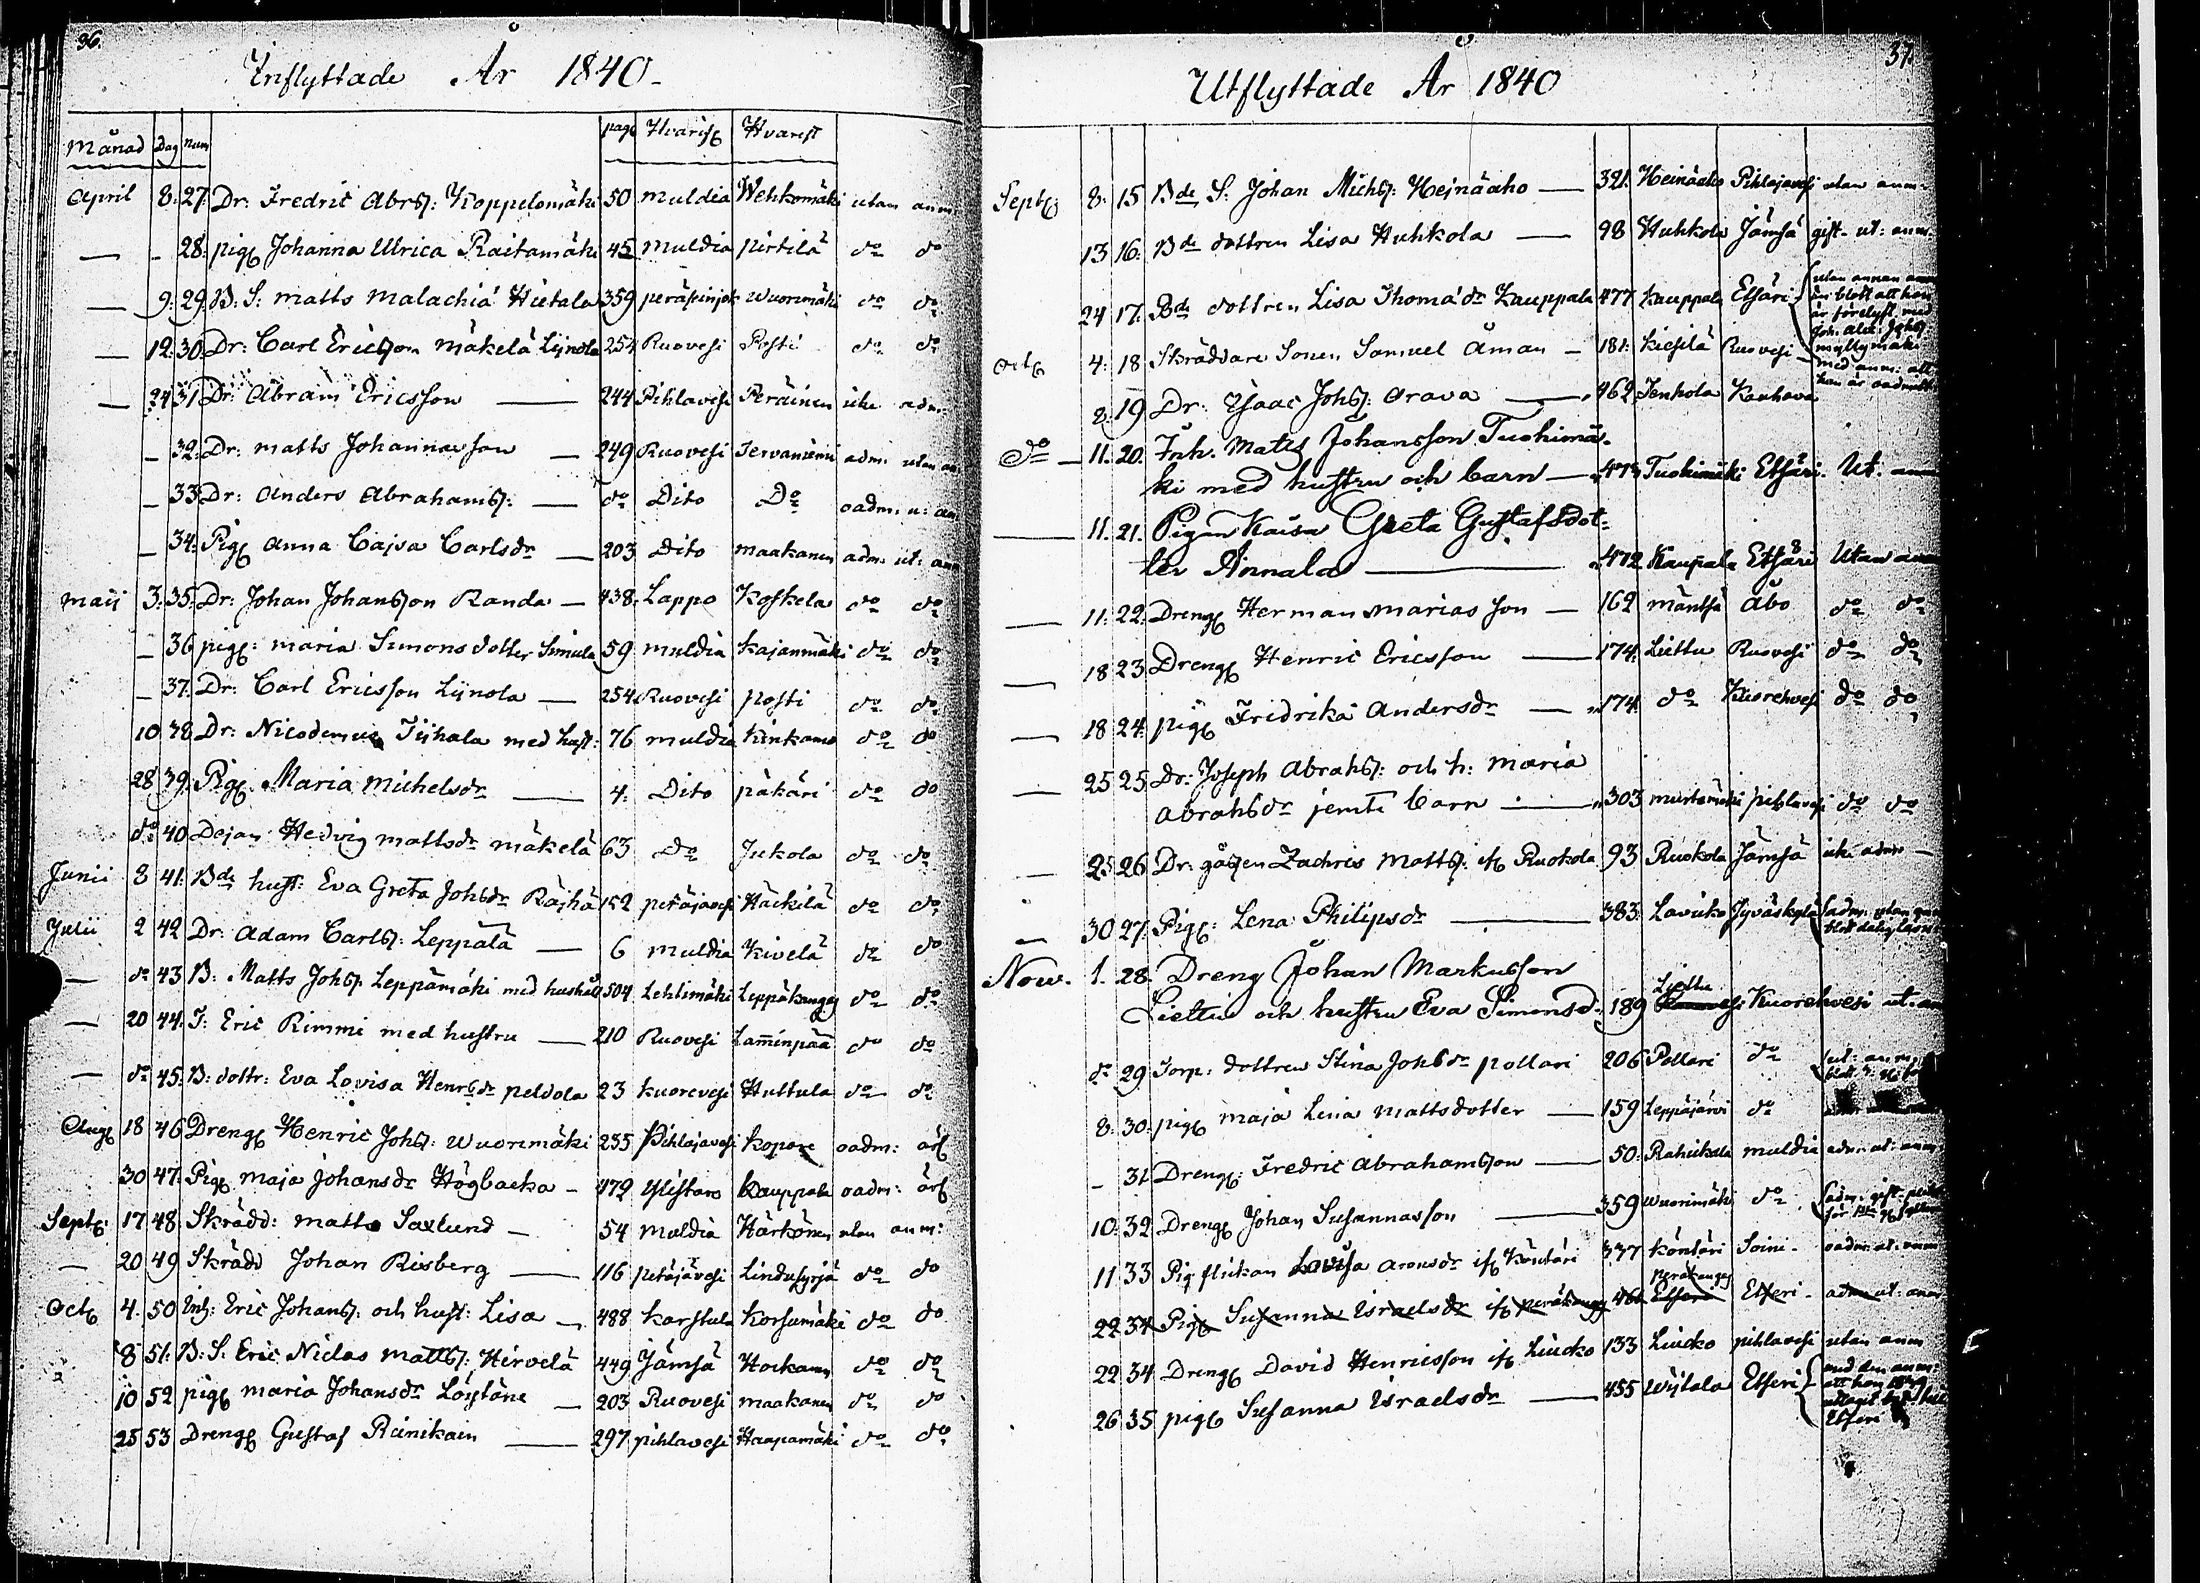 36.
Inflyttade År 1840
Månad Dag num page Hvarifr Hvarest
April 8. 27. Dr: Fredric Abrs: Koppelomäki 50 muldia Wehkomäki utan anm:
— - 28. pig Johanna Ulrica Raitamäki 45 muldia pirtilä do do
— 9. 29. B: S: matts malachia Hietala 359 wuorimäki do do
— 12. 30. Dr: Carl Ericsson mäkelä Lijnola 254 Ruovesi Posti do do
— 24 31 Dr: Abram Ericsson — 244 Pihlavesi Peräinen icke adm:
- 32. Dr: matts Johannesson — 249 Ruovesi Tervaniemi adm: utan an
- 33 Dr: Anders Abrahams: — do Dito Do oadm: u: an
- 34. Pig Anna Cajsa Carlsdr — 203 Dito maakanen adm: ut: anm
maii 3. 35. Dr: Johan Johansson Randa — 438. Lappo Koskela do do
- 36 pig: maria Simons dotter Simula 59 muldia Kajanmäki do do
- 37. Dr: Carl Ericsson Lijnola — 254 Ruovesi posti do do
10 38 Dr: Nicodemus Tiihala med hust: 76 muldia Kinkamo do do
28 39. Pig Maria Michelsdr — 4. Dito päkäri do do
do 40 Dejan Hedvig mattsdr mäkelä 63 Do Jukola do do
Junii 8 41. Bde hust: Eva Greta Johsdr Räjhä 152 petäjävesi Häckilä do do
Julii 2 42 Dr: Adam Carls: Leppälä — 6 muldia Kivelä do do
— do 43 B: Matts Johs: Leppämäki med hushåll 504 Lehtimäki Leppäkangas do do
— 20 44. I: Eric Rimmi med hustru — 210 Ruovesi Lamminpää do do
— do 45. B: dottr: Eva Lovisa Henrsdr peldola 23 kuorevesi Huttula do do
Aug 18 46 Dreng Henric Johs: wuorimäki 235 Pihlajavesi kopore oadm:
30 47. Pig maja Johansdr Högbacka - 472 Ylistaro Kauppala oadm:
Sept: 17 48 Skrädd: matts Saxlund - 54 muldia Härkönen utan anm:
— 20 49 Skrädd Johan Risberg — 116 petäjävesi Lindusyrjä do do
Oct 4. 50 Inh: Eric Johans: och hust: Lisa - 488 karstula Korsumäki do do
8 51. B: S: Eric Niclas matts: Hirvelä 449 Jämsä do do
10 52 pig maria Johansdr Löytäne — 203 Ruovesi maakanen do do
25 53 Dreng Gustaf Reinikain — 297 pihlavesi Haapamäki do do
37.
Utflyttade År 1840
Sept: 8. 15 Bde S: Johan Michs: Heinäaho — 321. Heinäaho Pihlajavesi utan anm:
13 16. Bde dottren Lisa Huhkola — 98 Huhkola Jämsä gift. ut: anm:
24 17. Bde dottren Lisa Thomädr Kauppala 477 kauppala Etsäri utan annan anm
än blott att hon
är förelyst med
Joh: Alex: Johs:
myllymäki
Oct 4. 18 Skräddare Sonen Samuel Åman — 181. kiesilä Ruovesi med anm: att
han är oadmitt:
8. 19 Dr: Isaac Johs: Arava — 462 Tenhola Kauhava
do - 11. 20. Inh. Matts Johansson Tuohimä-
ki med hustru och barn — 473 Tuohimäki Etsäri. Ut. anm
— 11. 21. Pigan Kaisa Greta Gustafsdot-
ter Annala — 472 Kaupala Etsäri Utan anm
— 11. 22. Dreng Herman mariasson — 162 mäntsä Åbo do do
— 18 23 Dreng Henric Ericsson — 174. Liettu Ruovesi do do
— 18 24 pig Fredrika Andersdr — 174 do Kuorehvesi do do
— 25 25 Dr: Joseph Abrahs: och h: maria
Abrahsdr jemte barn — 303 murtomäki pihlavesi do do
— 25 26 Dr: gåssen Zachris Matts: ifr Ruokola 93 Ruokola Jämsä icke adm —
— 30 27. Pig: Lena Philipsdr — 383. Laviko Jyväskylä adm: utan
blott dålig läsn
Now. 1. 28. Dreng Johan Markusson
Liettu och hustru Eva Simonsd. 189 Liettu Kuorehvesi ut. an
do 29 Torp: dottren Stina Johsdr pollari 206 Pollari do ut: anm
8. 30. pig maja Lena mattsdotter — 159 Leppäjärvi do
- 31 Dreng: Fredric Abrahamsson — 50. Rahikala muldia adm: ut: anm
10. 32 Dreng Johan Susannasson — 359 wuorimäki do
11 33 Pig flickan Lovisa Aronsdr ifr Köntäri 337 köntäri Soini - oadm: ut: anm
22 34 Pig Susanna Israelsdr ifr peräkang 460 peräkangas Etseri Etseri - adm ut: anm
22 34 Dreng David Henricsson ifr Liucko 133 Liucko pihlavesi utan anm
26 35 pig Susanna Israelsdr — 455 Wijtala Etseri med den anm:
att hon 1839
uttagit
Etseri